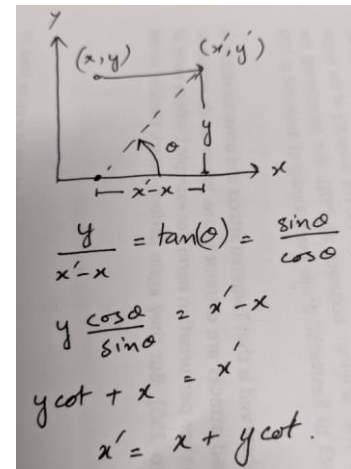 y
(x,y)
(x',y')
θ
y
x
x'-x
y / x'-x = tan(θ) = sinθ / cosθ
y cosθ / sinθ = x'-x
y cot + x = x'
x' = x + y cot.